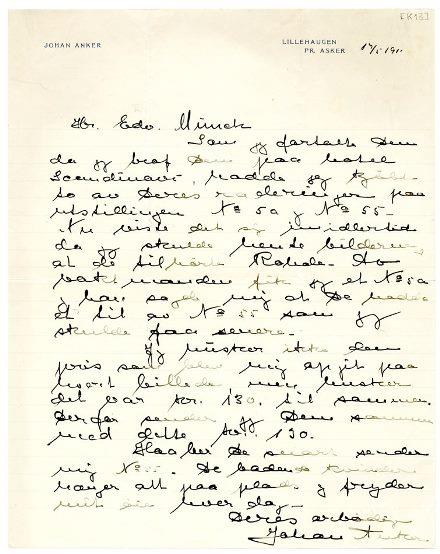 [K13]
JOHAN ANKER
LILLEHAUGEN
PR. ASKER
Hr. Edv. Munck
Som jeg fortalte Dem
da jeg traf Dem paa hotel
Scandinavie, hadde jeg kjøbt
to av Deres raderinger paa
utstillingen No 5a og No 55.
Nu viste det sig imidlertid
da jeg skulde hente billederne
at de tilhørte Rohde. Av
manden fik jeg et No 5a
og han sagde mig at De hadde
et til av No 55 som jeg
skulde faa senere.
Jeg husker ikke den
pris som blev mig opgit paa
hvert billede men husker
det var kr. 130. til sammen.
Derfor sender jeg Dem sammen
med dette kr. 130.
Haaber De snart sender
mig No 55. De badende kvinder
hænger alt paa plads og fryder
mit øie hver dag.
Deres ærbødig
Johan Anker